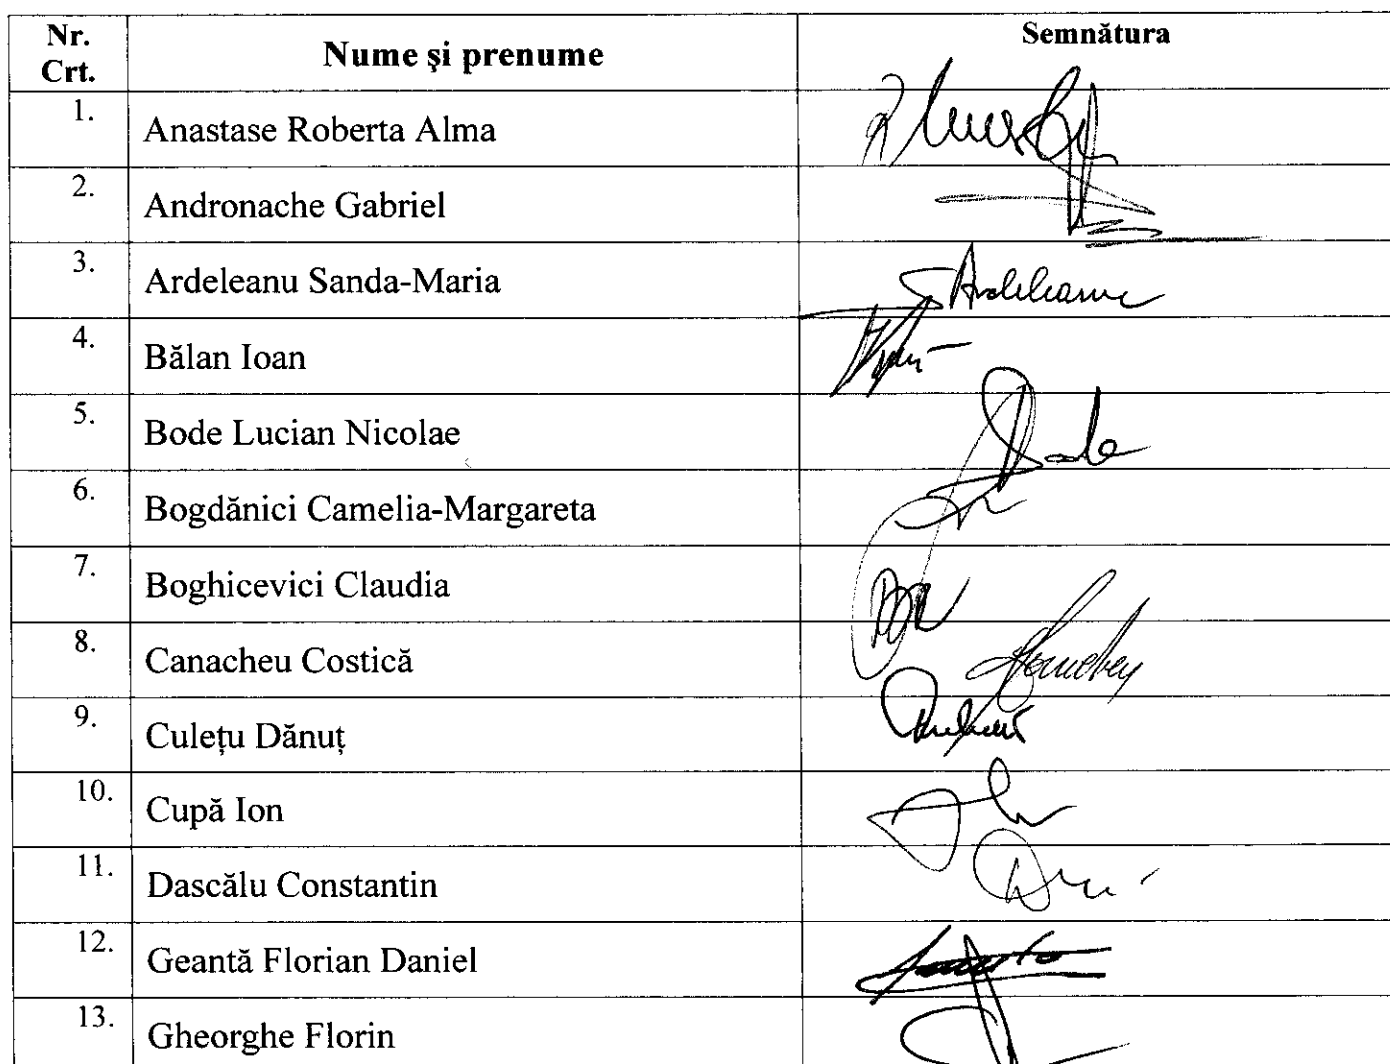 Nr. Crt. Nume şi prenume Semnătura
1. Anastase Roberta Alma
2. Andronache Gabriel
3. Ardeleanu Sanda-Maria SArdeleanu
4. Bălan Ioan
5. Bode Lucian Nicolae Bode
6. Bogdănici Camelia-Margareta
7. Boghicevici Claudia
8. Canacheu Costică
9. Culețu Dănuț
10. Cupă Ion
11. Dascălu Constantin
12. Geantă Florian Daniel
13. Gheorghe Florin